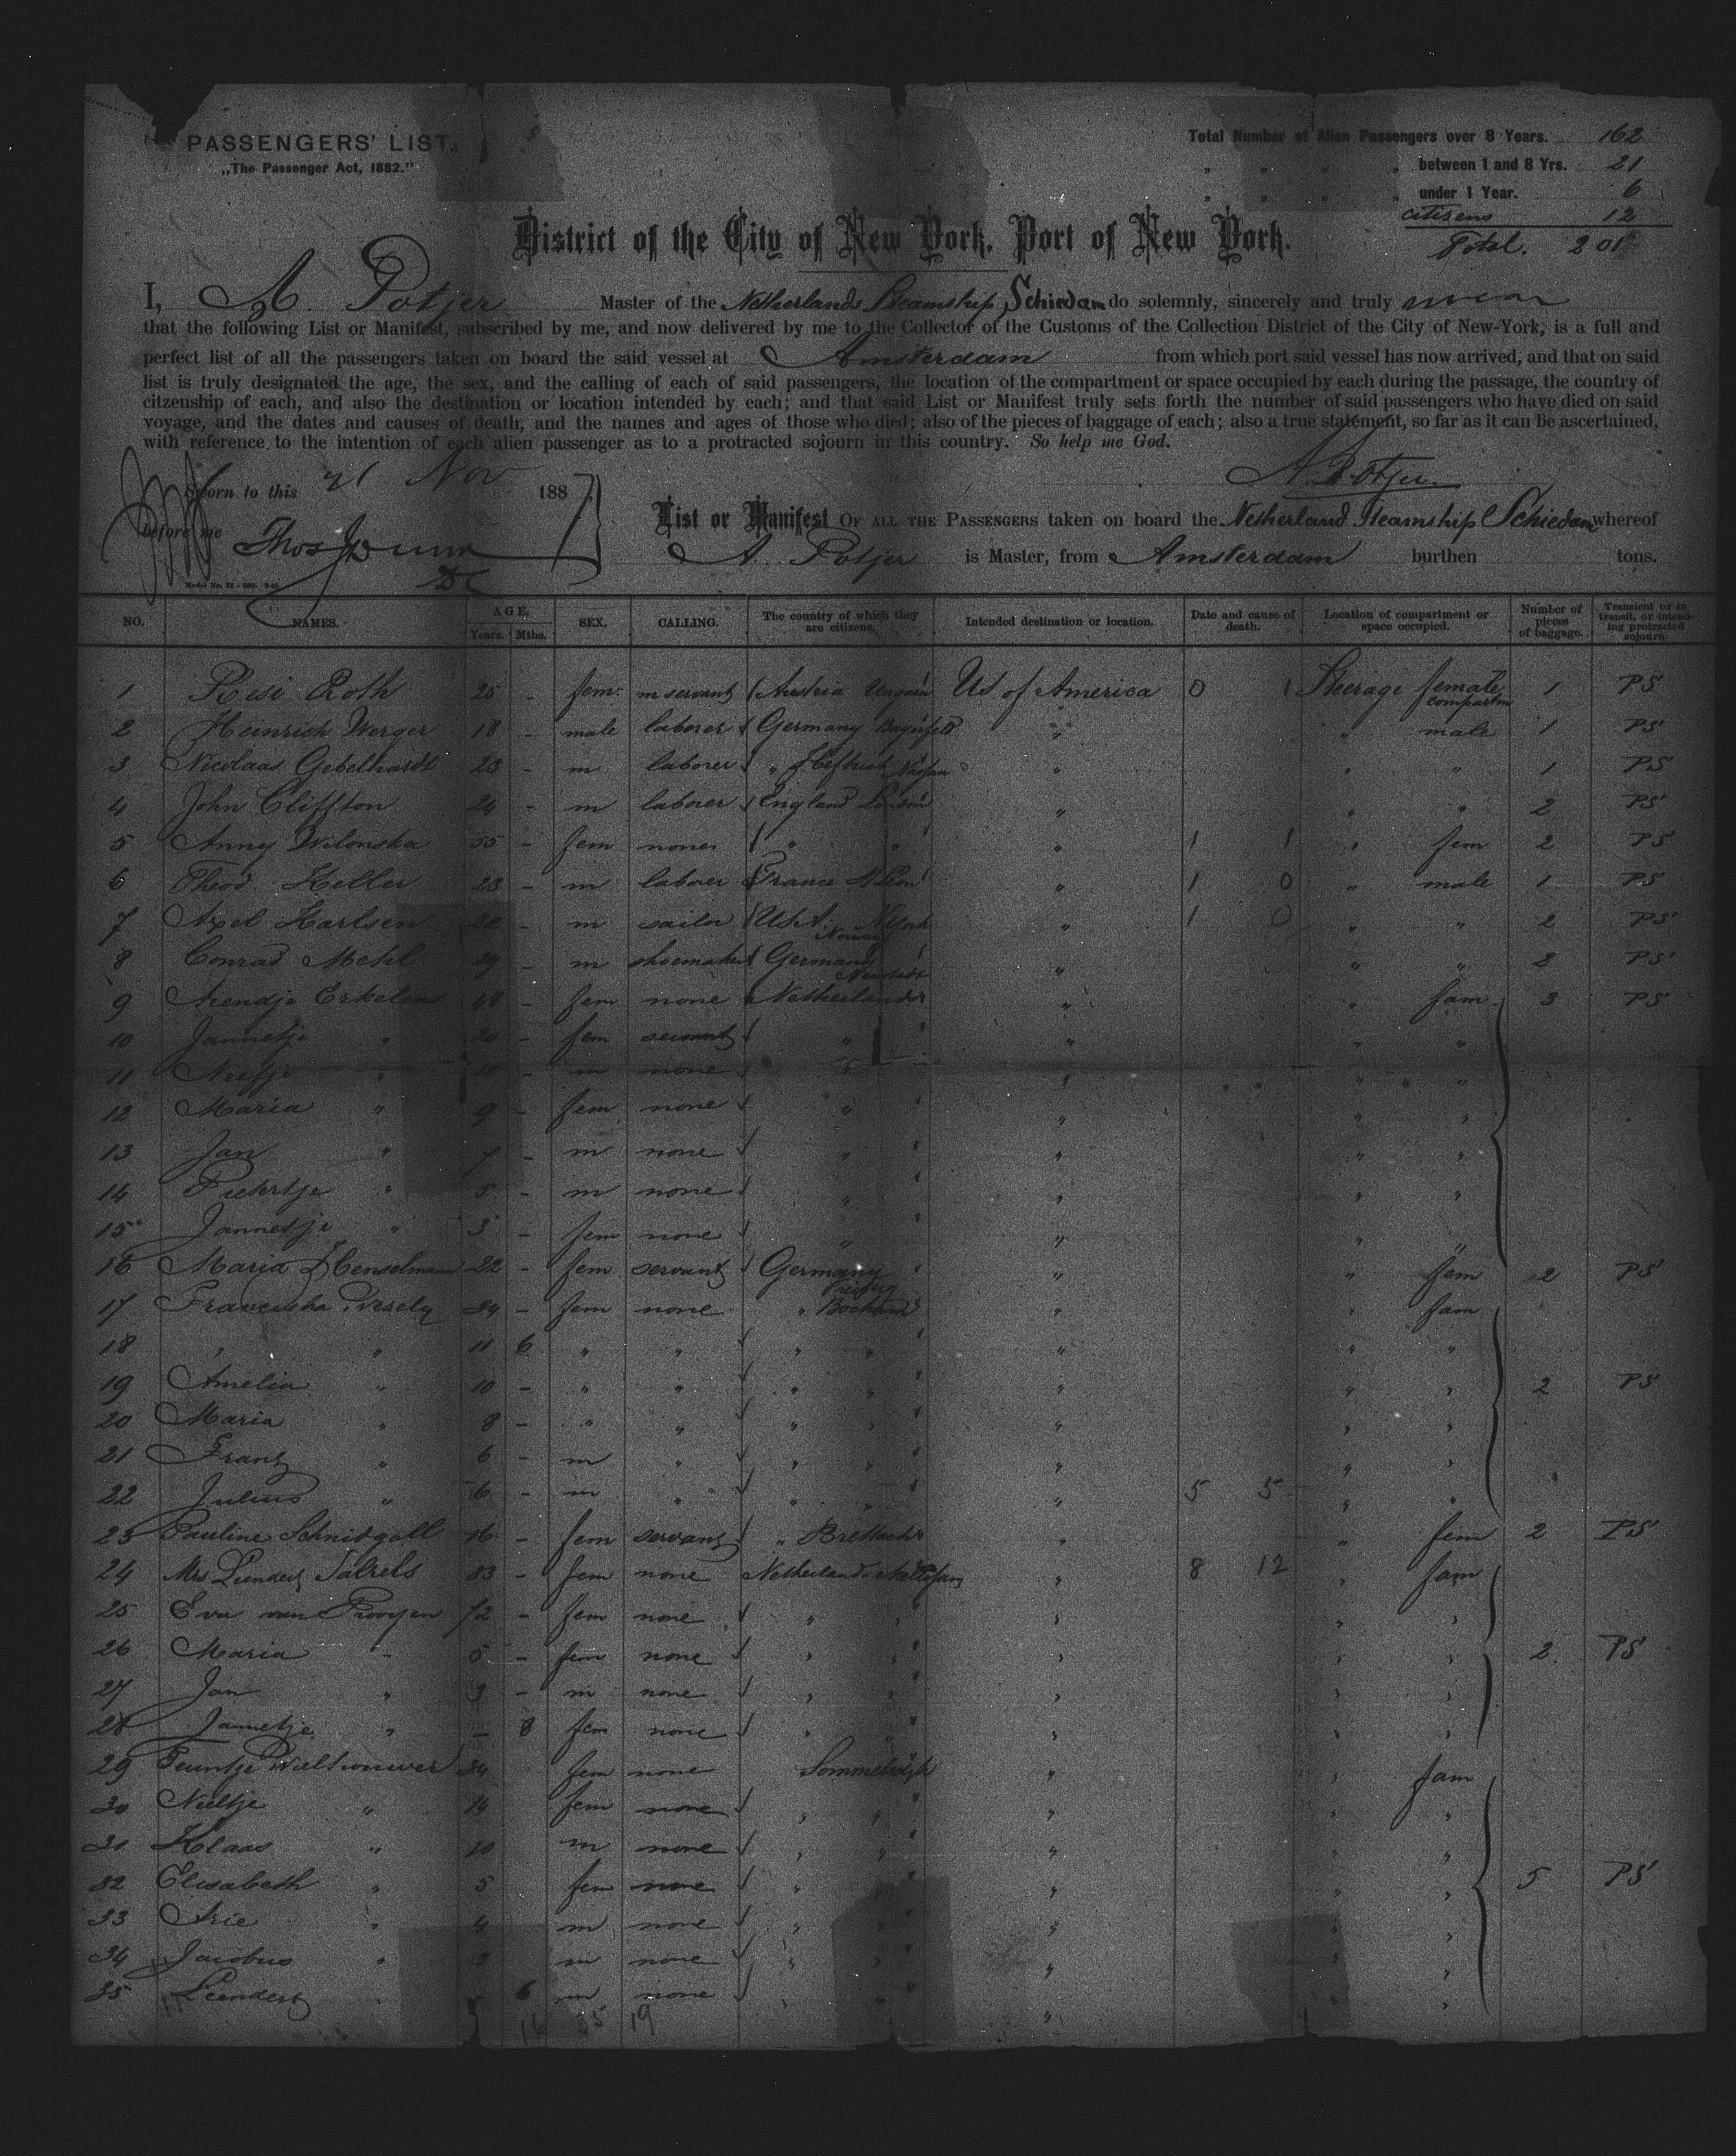 PASSENGERS' LIST.
„The Passenger Act, 1882."
Total Number of Alien Passengers over 8 Years. 162
„ „ „ „ between 1 and 8 Yrs. 21
„ „ „ „ under 1 Year. 6
citizens 12
Total. 201
District of the City of New York, Port of New York.
I, A. Potjer Master of the Netherlands Steamship Schiedam do solemnly, sincerely and truly swear
that the following List or Manifest, subscribed by me, and now delivered by me to the Collector of the Customs of the Collection District of the City of New-York, is a full and
perfect list of all the passengers taken on board the said vessel at Amsterdam from which port said vessel has now arrived, and that on said
list is truly designated the age, the sex, and the calling of each of said passengers, the location of the compartment or space occupied by each during the passage, the country of
citzenship of each, and also the destination or location intended by each; and that said List or Manifest truly sets forth the number of said passengers who have died on said
voyage, and the dates and causes of death, and the names and ages of those who died; also of the pieces of baggage of each; also a true statement, so far as it can be ascertained,
with reference to the intention of each alien passenger as to a protracted sojourn in this country. So help me God.
A. Potjer.
Sworn to this 21 Nov 1887
before me Thos J Dunn
DC
List or Manifest OF ALL THE PASSENGERS taken on board the Netherland Steamship Schiedam whereof
A. Potjer is Master, from Amsterdam burthen tons.
NO. NAMES. AGE. Years. Mths. SEX. CALLING. The country of which they are citizens. Intended destination or location. Date and cause of death. Location of compartment or space occupied. Number of pieces of baggage. Transient or in transit, or intending protracted sojourn.
1 Resi Roth 25 - fem. m servant Austria Ungarn Us of America 0 1 Steerage female compartm 1 PS
2 Heinrich Werger 18 - male laborer Germany „ „ male 1 PS
3 Nicolaas Gebelhardt 23 - m laborer „ Nassau „ „ „ 1 PS
4 John Cliffton 24 - m laborer England London „ „ „ 2 PS
5 Anny Wilonska 55 - fem none „ „ „ 1 1 „ fem 2 PS
6 Theod. Keller 23 - m laborer France „ 1 0 „ male 1 PS
7 Axel Karlsen 22 m sailor USA. NYork „ 1 0 „ „ 2 PS
8 Conrad Mehl 29 - m shoemaker Germany Neustadt „ „ „ 2 PS
9 Arendje Erkelens 48 - fem none Netherlands „ „ fam 3 PS
10 Jannetje „ 20 - fem servant „ „ „ „
11 Neeltje „ 11 - m none „ „ „ „
12 Maria „ 9 - fem none „ „ „ „
13 Jan „ 7 - m none „ „ „ „
14 Pietertje „ 5 - m none „ „ „ „
15 Jannetje „ 3 - fem none „ „ „ „
16 Maria Henselmann 22 - fem servant Germany „ „ fem 2 PS
17 Franciska Wesely 34 - fem none „ „ „ fam
18 „ „ 11 6 „ „ „ „ „ „ „
19 Amelia „ 10 - „ „ „ „ „ „ „ 2 PS
20 Maria „ 8 - „ „ „ „ „ „ „
21 Franz „ 6 - m „ „ „ „ „ „
22 Julius „ 6 - m „ „ „ „ 5 5 „ „
23 Pauline Schnidgall 16 - fem servant „ „ „ fem 2 PS
24 Mrs Leendert 33 - fem none Netherlands „ 8 12 „ fam
25 Eva van Prooyen 72 - fem none „ „ „ „ „
26 Maria „ 5 - fem none „ „ „ „ „ 2 PS
27 Jan „ 3 - m none „ „ „ „ „
28 Jannetje „ - 8 fem none „ „ „ „ „
29 Teuntje 34 fem none Sommelsdijk „ „ fam
30 Neeltje „ 14 fem none „ „ „ „ „
31 Klaas „ 10 m none „ „ „ „ „
32 Elisabeth „ 5 fem none „ „ „ „ „ 5 PS
33 Arie „ 4 m none „ „ „ „ „
34 Jacobus „ 3 m none „ „ „ „ „
35 Leendert „ 6 m none „ „ „ „ „
16 35 19